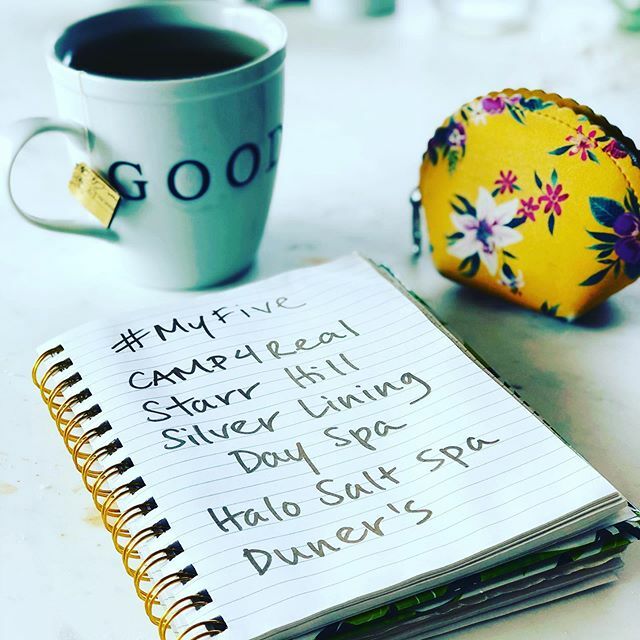 GOOD
#MyFive
CAMP4Real
Starr Hill
Silver Lining
Day Spa
Halo Salt Spa
Duner's